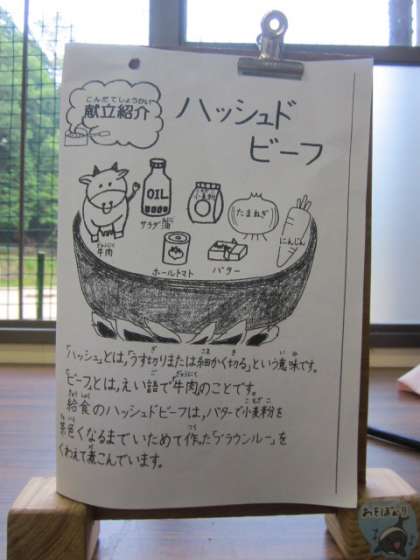 こんだてしょうかい
献立紹介
ハッシュド
ビーフ
OIL
小麦粉
たまねぎ
にんじん
サラダ油
ぎゅうにく
牛肉
ホールトマト
バター
「ハッシュ」とは、「うす切りまたは細かく切る」という意味です。
「ビーフ」とは、えい語で「牛肉」のことです。
給食のハッシュドビーフは、バターで小麦粉を
茶色くなるまでいためて作った「ブラウンルー」を
くわえて煮こんでいます。